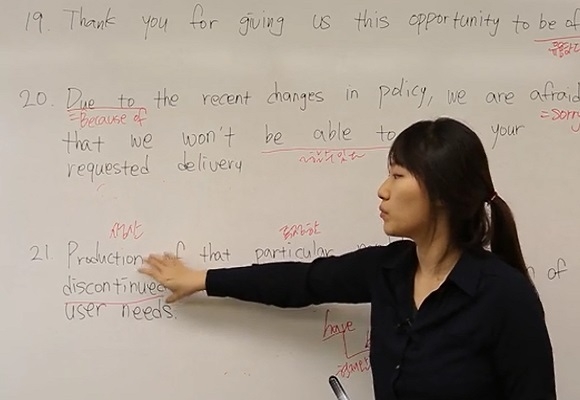 19. Thank you for giving us this opportunity to be of
20. Due to the recent changes in policy, we are afraid
=Because of
=sorry
that we won't be able to your
requested delivery
생산
21. Production of that particular
of
discontinued
user needs.
have